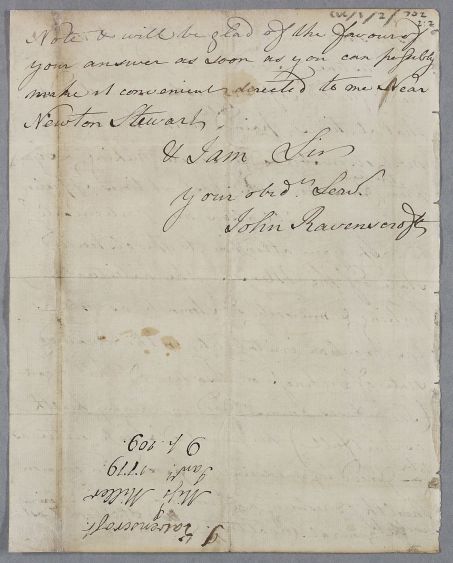 Note & will be glad of the favour of
your answer as soon as you can possibly
make it convenient directed to me Near
Newton Stewart
& I am Sir
your obed.t Serv.
John Ravenscroft
Ravenscroft
Miss Miller
Jan.y 1779